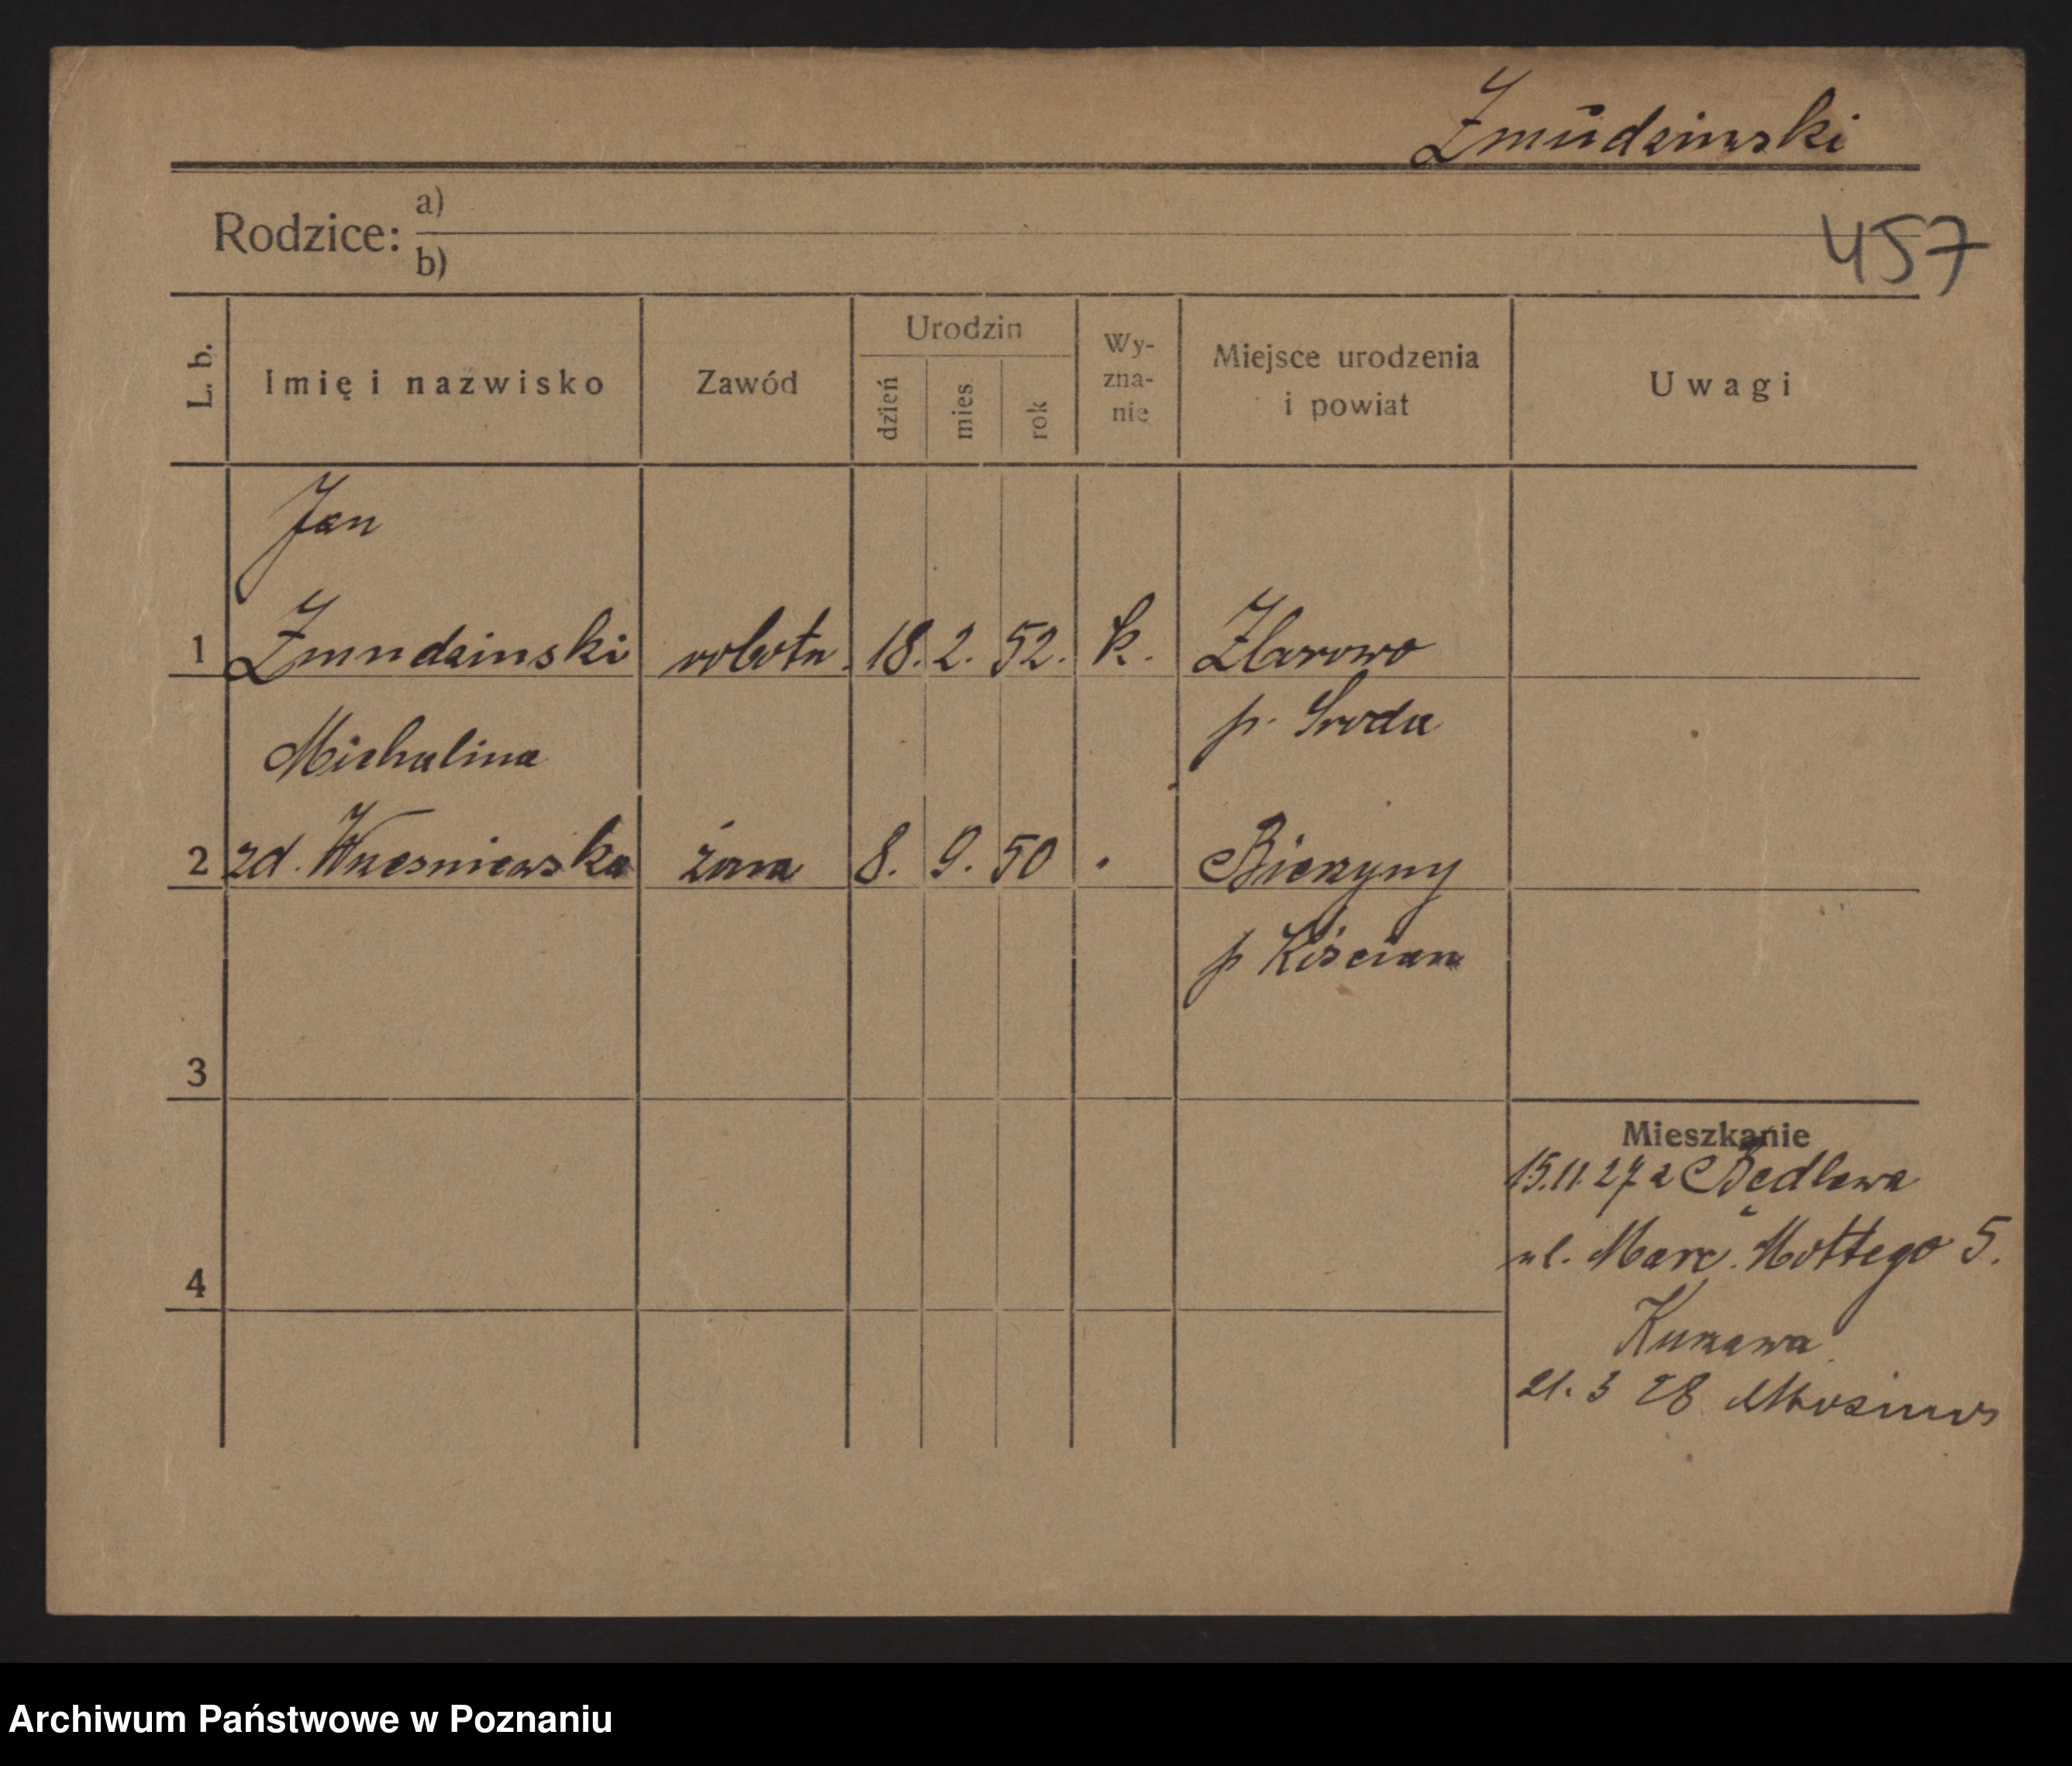 Żmudzinski
Rodzice:
a)
b)
457
L. b.
Imię i nazwisko
Zawód
Urodzin
dzień
mies
rok
Wy-
zna-
nie
Miejsce urodzenia
i powiat
Uwagi
Jan
1 Żmudzinski robotn. 18. 2. 52. k.
p. Sroda
Michalina
2 zd. Wrzesniewska żona 8. 9. 50 "
p Kościan
3
4
Mieszkanie
15.11.27 z Będlewa
ul. Marc. Mottego 5.
21. 3 28
Archiwum Państwowe w Poznaniu